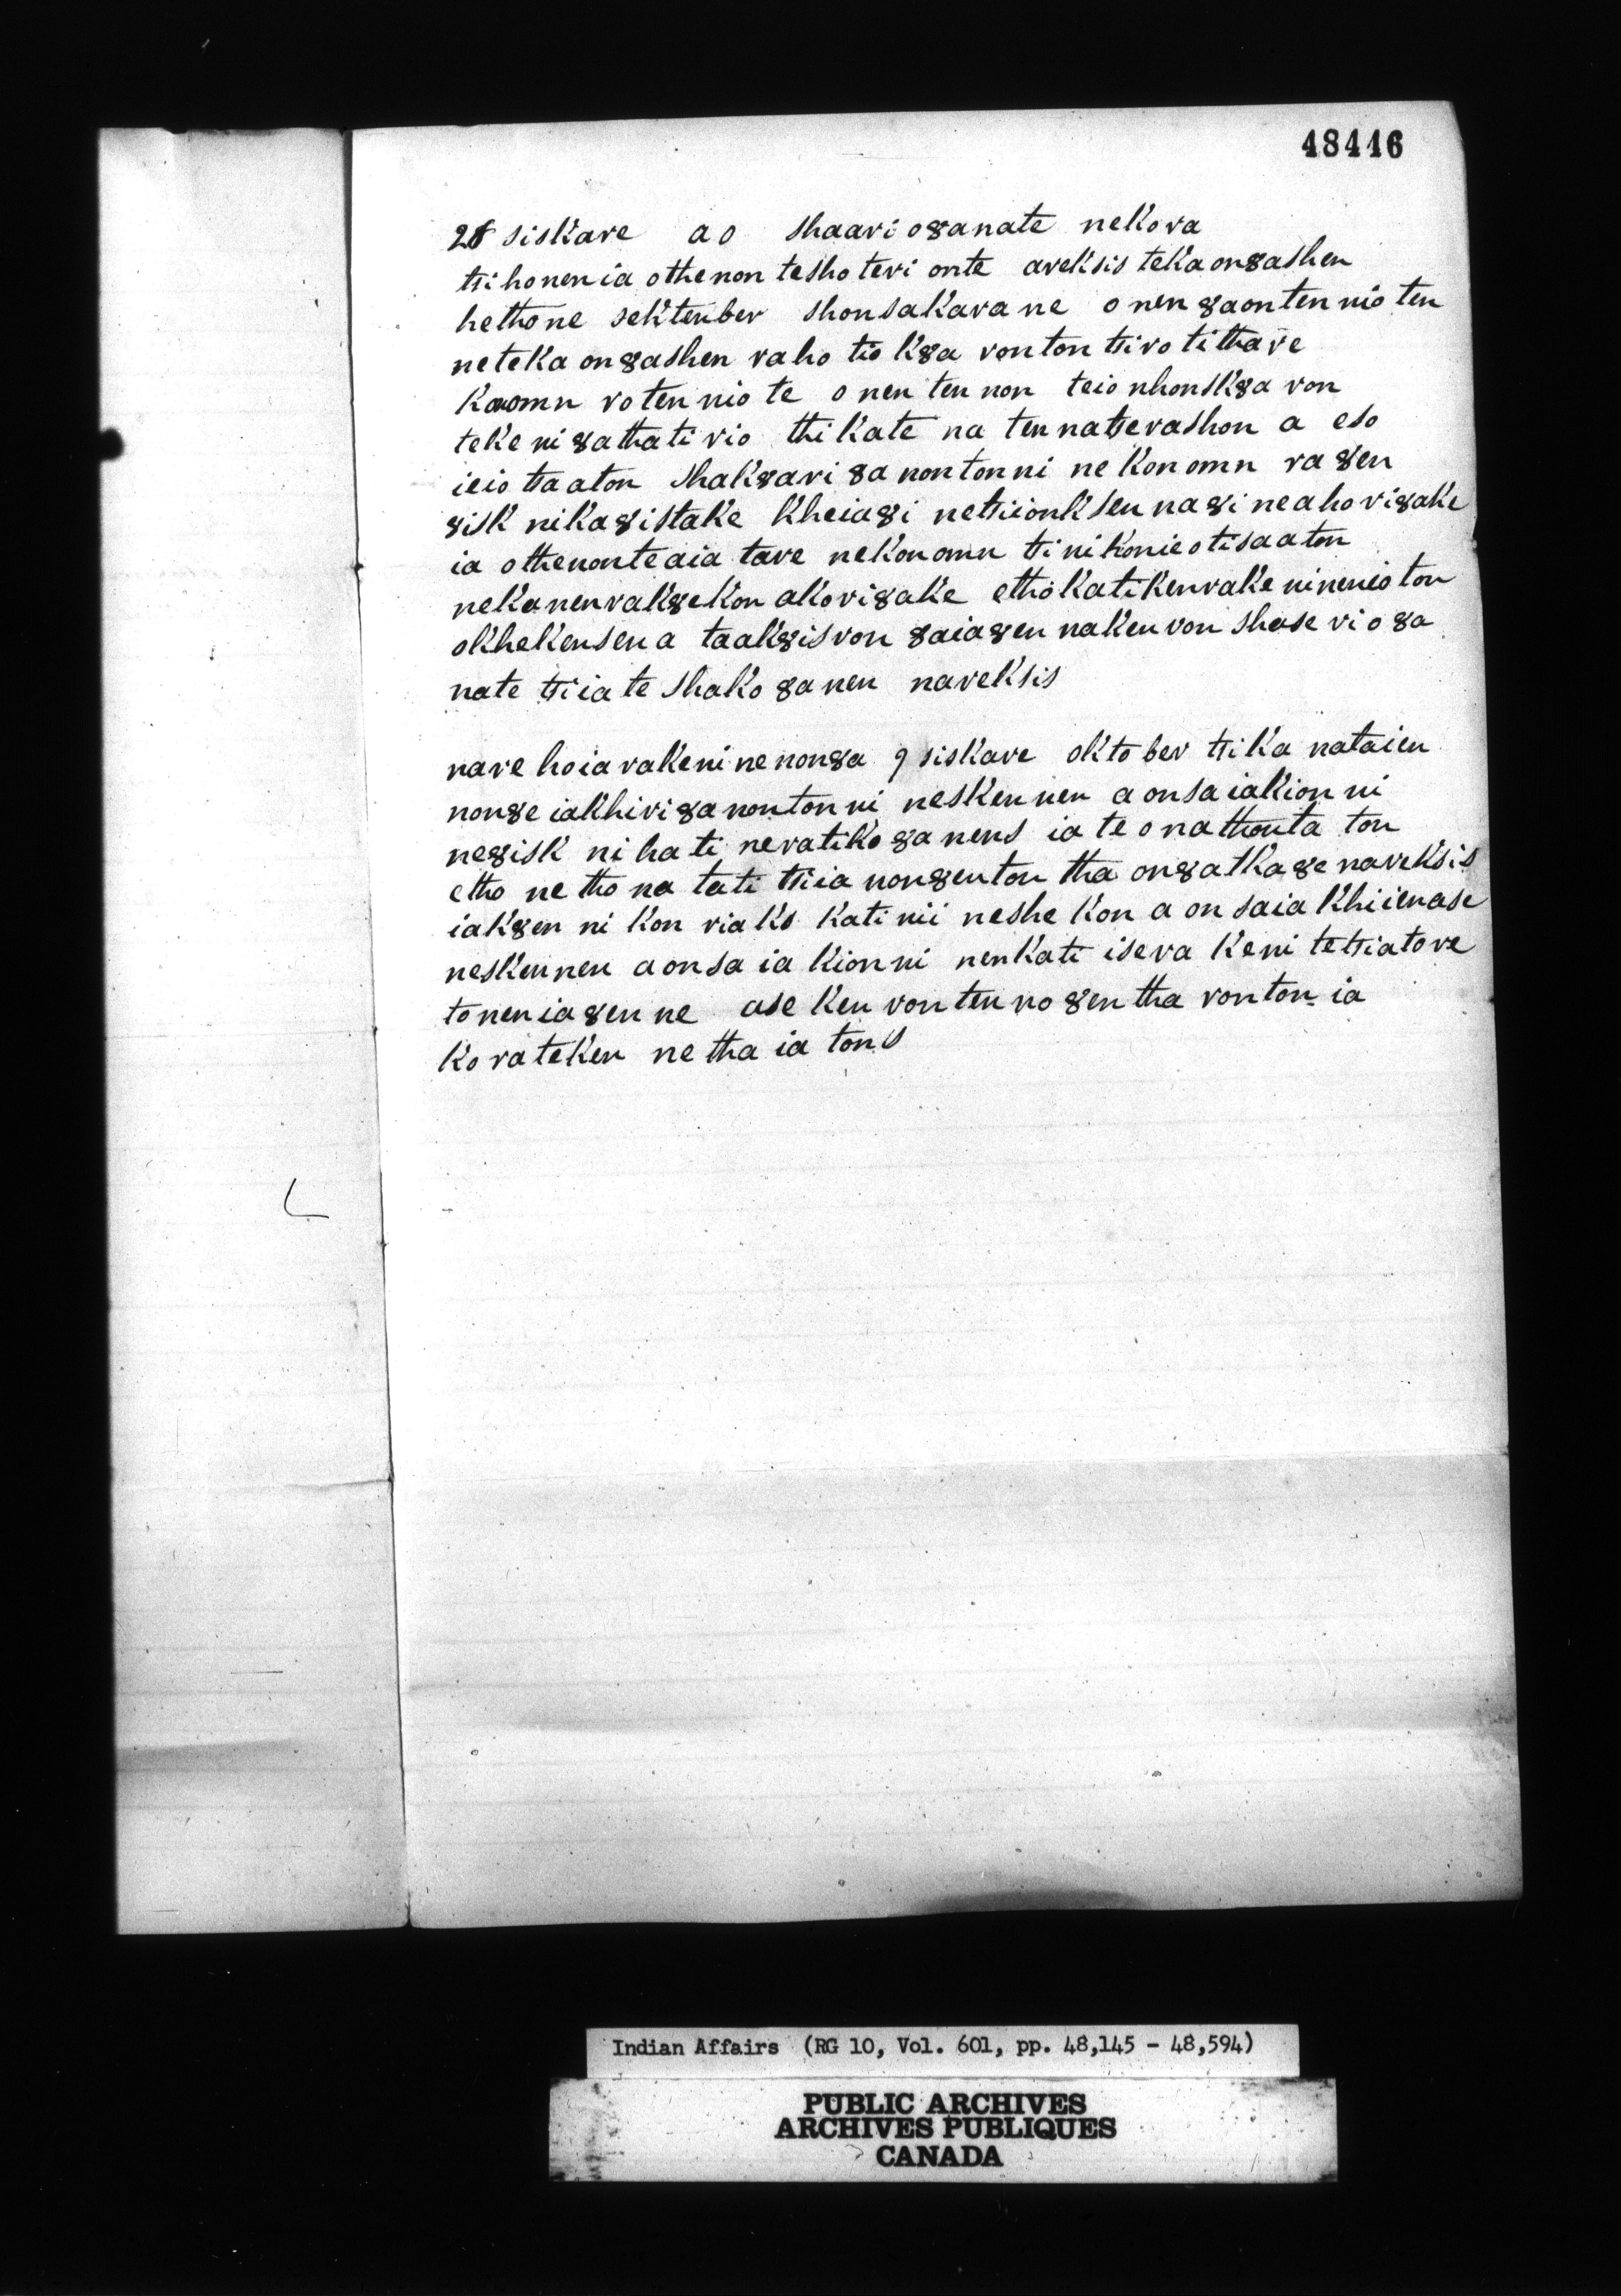 48446
28 siskare ao shaari o8anate nekora
tsi honen ia othenon tesho teri onte areksis teka on8ashen
hethone sektenber shonsakarane onen 8aontennioten
neteka on8ashen raho tio k8a ronton tsi ro ti thare
kaomn ro tennio te onen tennon teio nhonsk8a ron
teke ni 8athati rio thi kate na tennatserashon a eso
ieio tsa aton shak8ari 8anontonni ne konomn ra8en
8isk nika8istake kheia8i netsiionksenna8i neahori8ake
ia othenonteaia tare nekonomn tsi nikonieotisaaton
nekanenrak8ekon akori8ake ethokatikenrakenineneioton
okhekensen a taak8isron 8aia8en nakenron shase ri o8a
nate tsi ia te shako8anen nareksis
nare hoia rakeni nenon8a 9 siskare oktober tsi ka nataien
non8e iakhiri8anontonni neskennen aonsaiakionni
ne8isk nihati neratiko8anens ia te onathonta ton
etho netho na tati tsiia non8enton tha on8atka8e nareksis
iak8en ni kon riaks kati nii neshekon aonsaiakhiienase
neskennen aonsaiakionni nenkati ise rakeni tetsiatore
tonen ia8enne ase ken ronten no8en tha ronton ia
ko rateken ne tha ia tons
Indian Affairs (RG 10, Vol. 601, pp. 48,145 - 48,594)
PUBLIC ARCHIVES
ARCHIVES PUBLIQUES
CANADA